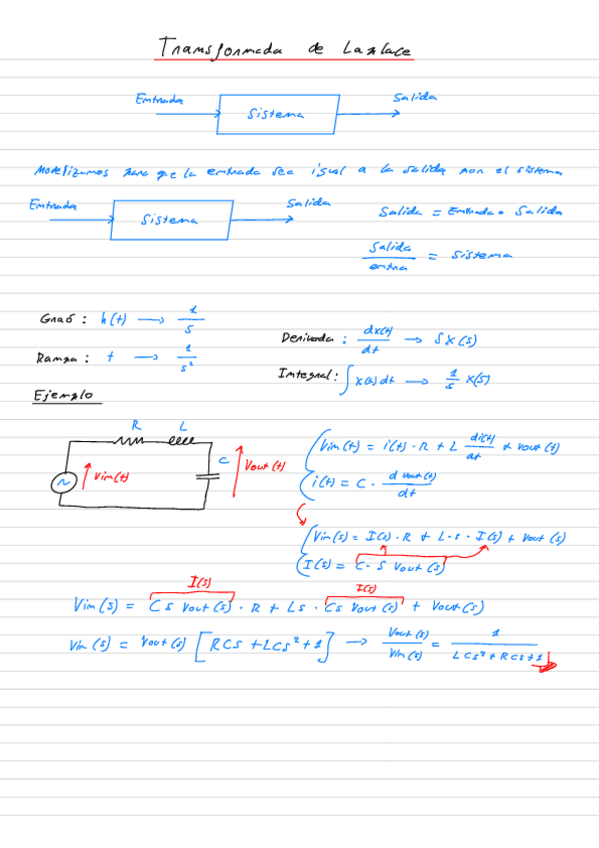 Transformada de Laplace
Entrada Sistema Salida
Modelizamos para que la entrada sea igual a la salida por el sistema
Entrada Sistema Salida
Salida = Entrada • Salida
Salida / entra = Sistema
Graó : h(t) → 1/s
Rampa : t → 1/s²
Derivada : dx(t)/dt → S X(s)
Integral : ∫ x(t) dt → 1/s X(s)
Ejemplo
R L
Vin(t) C Vout(t)
Vin(t) = i(t) · R + L di(t)/dt + Vout(t)
i(t) = C · d Vout(t)/dt
Vin(s) = I(s) · R + L · s · I(s) + Vout(s)
I(s) = C · S Vout(s)
I(s) I(s)
Vin(s) = Cs Vout(s) · R + Ls · Cs Vout(s) + Vout(s)
Vin(s) = Vout(s) [RCs + LCs² + 1] → Vout(s)/Vin(s) = 1/(LCs² + RCs + 1)